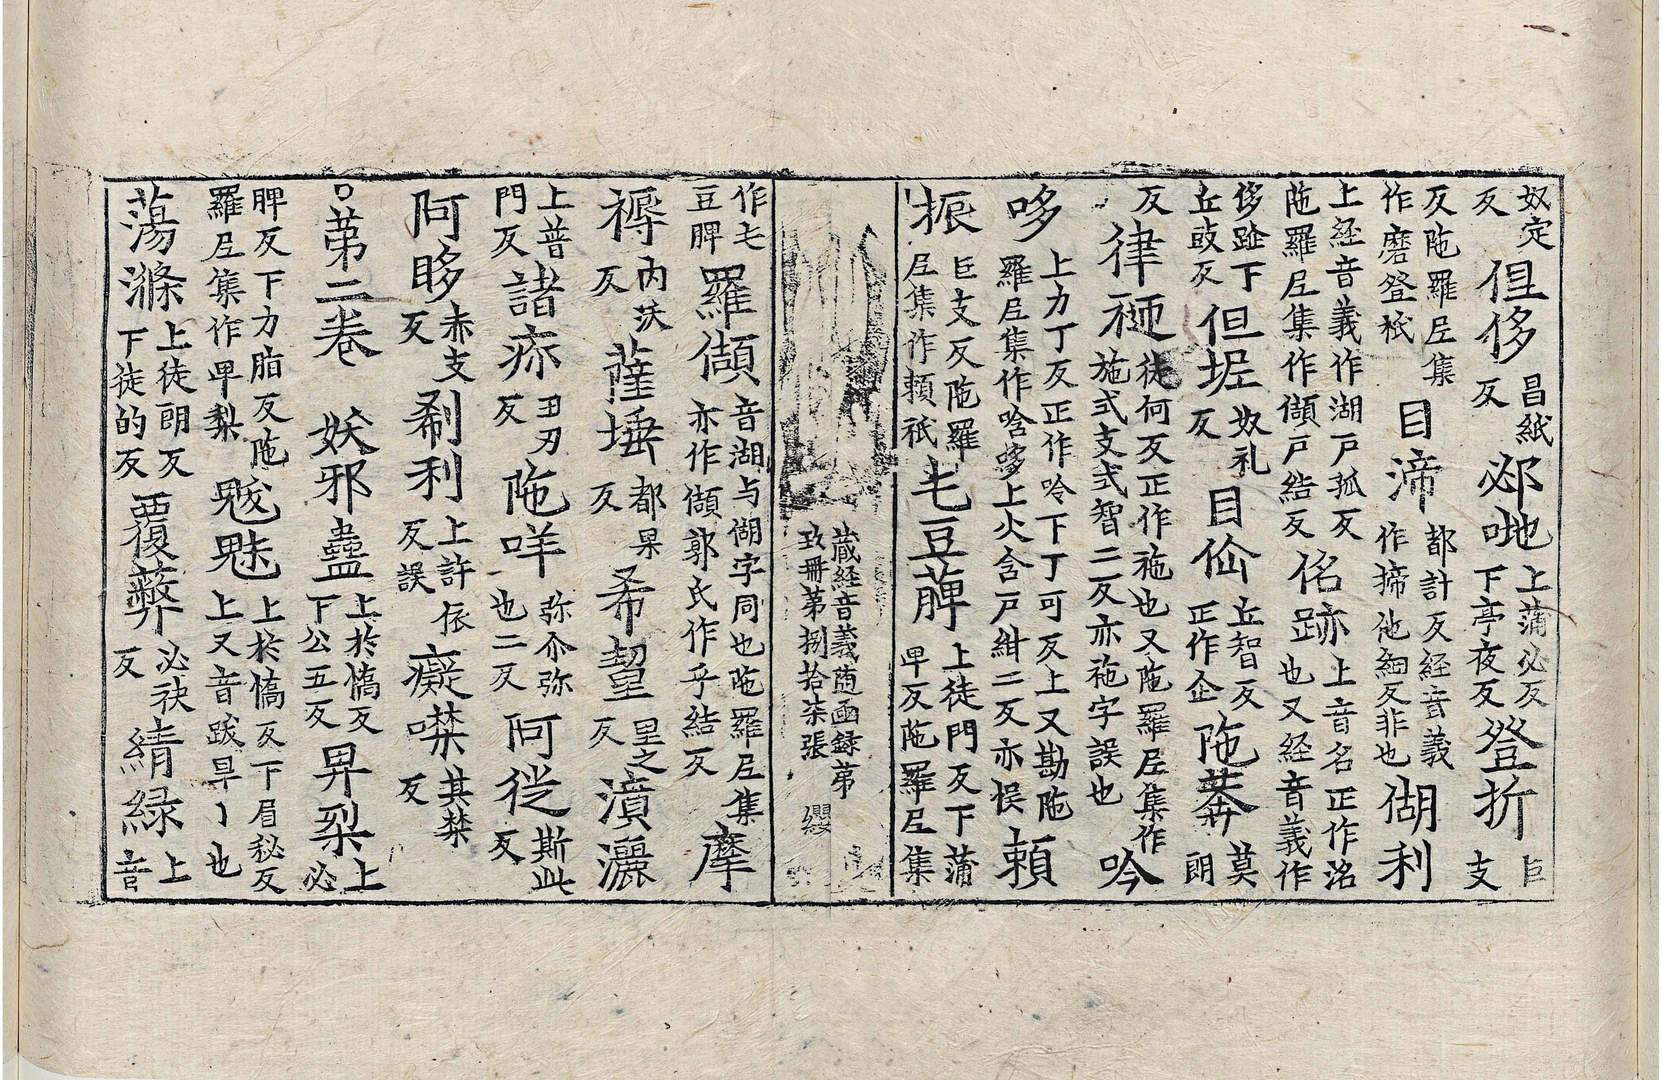 奴定反 但侈 昌紙反 邲哋 上蒲必反下亭夜反 登折 巨支
反陁羅尼集作磨登祇 目渧 都計反経音義作揥他細反非也 𠋥利
上経音義作湖戶孤反陁羅尼集作𠎷戶結反 佲跡 上音名正作洺也又経音義作
侈跡下丘豉反 但坭 奴礼反 目㑣 丘智反正作企 陁𦿆 莫朗
反 律𥘺 徒何反正作袘也又陁羅尼集作施式支式智二反亦袘字誤也 吟
哆 上力丁反正作呤下丁可反上又勘陁羅尼集作唅哆上火含戶紺二反亦悮 頼
振 巨支反陁羅尼集作頼祇 乇豆䔑 上徒門反下蒲卑反陁羅尼集
藏経音義随函録第
玖冊第捌拾柒張 纓
作乇豆脾 羅𠎷 音湖与𠋥字同也陁羅尼集亦作𠎷郭氏作乎結反 摩
褥 內沃反 薩埵 都果反 希望 里之反 㵄灑
上普門反 諸疢 丑刃反 陁咩 弥介弥也二反 阿徙 斯此反
阿眵 赤支反 剎利 上許依反誤 癡噤 其禁反
第二卷 妖邪蠱 上於憍反下公五反 畀梨 上必
脾反下力脂反陁羅尼集作畀梨 魃魅 上於憍反下眉秘反上又音跋旱丨也
蕩滌 上徒朗反下徒的反 覆蔽 必袂反 綪緑 上音